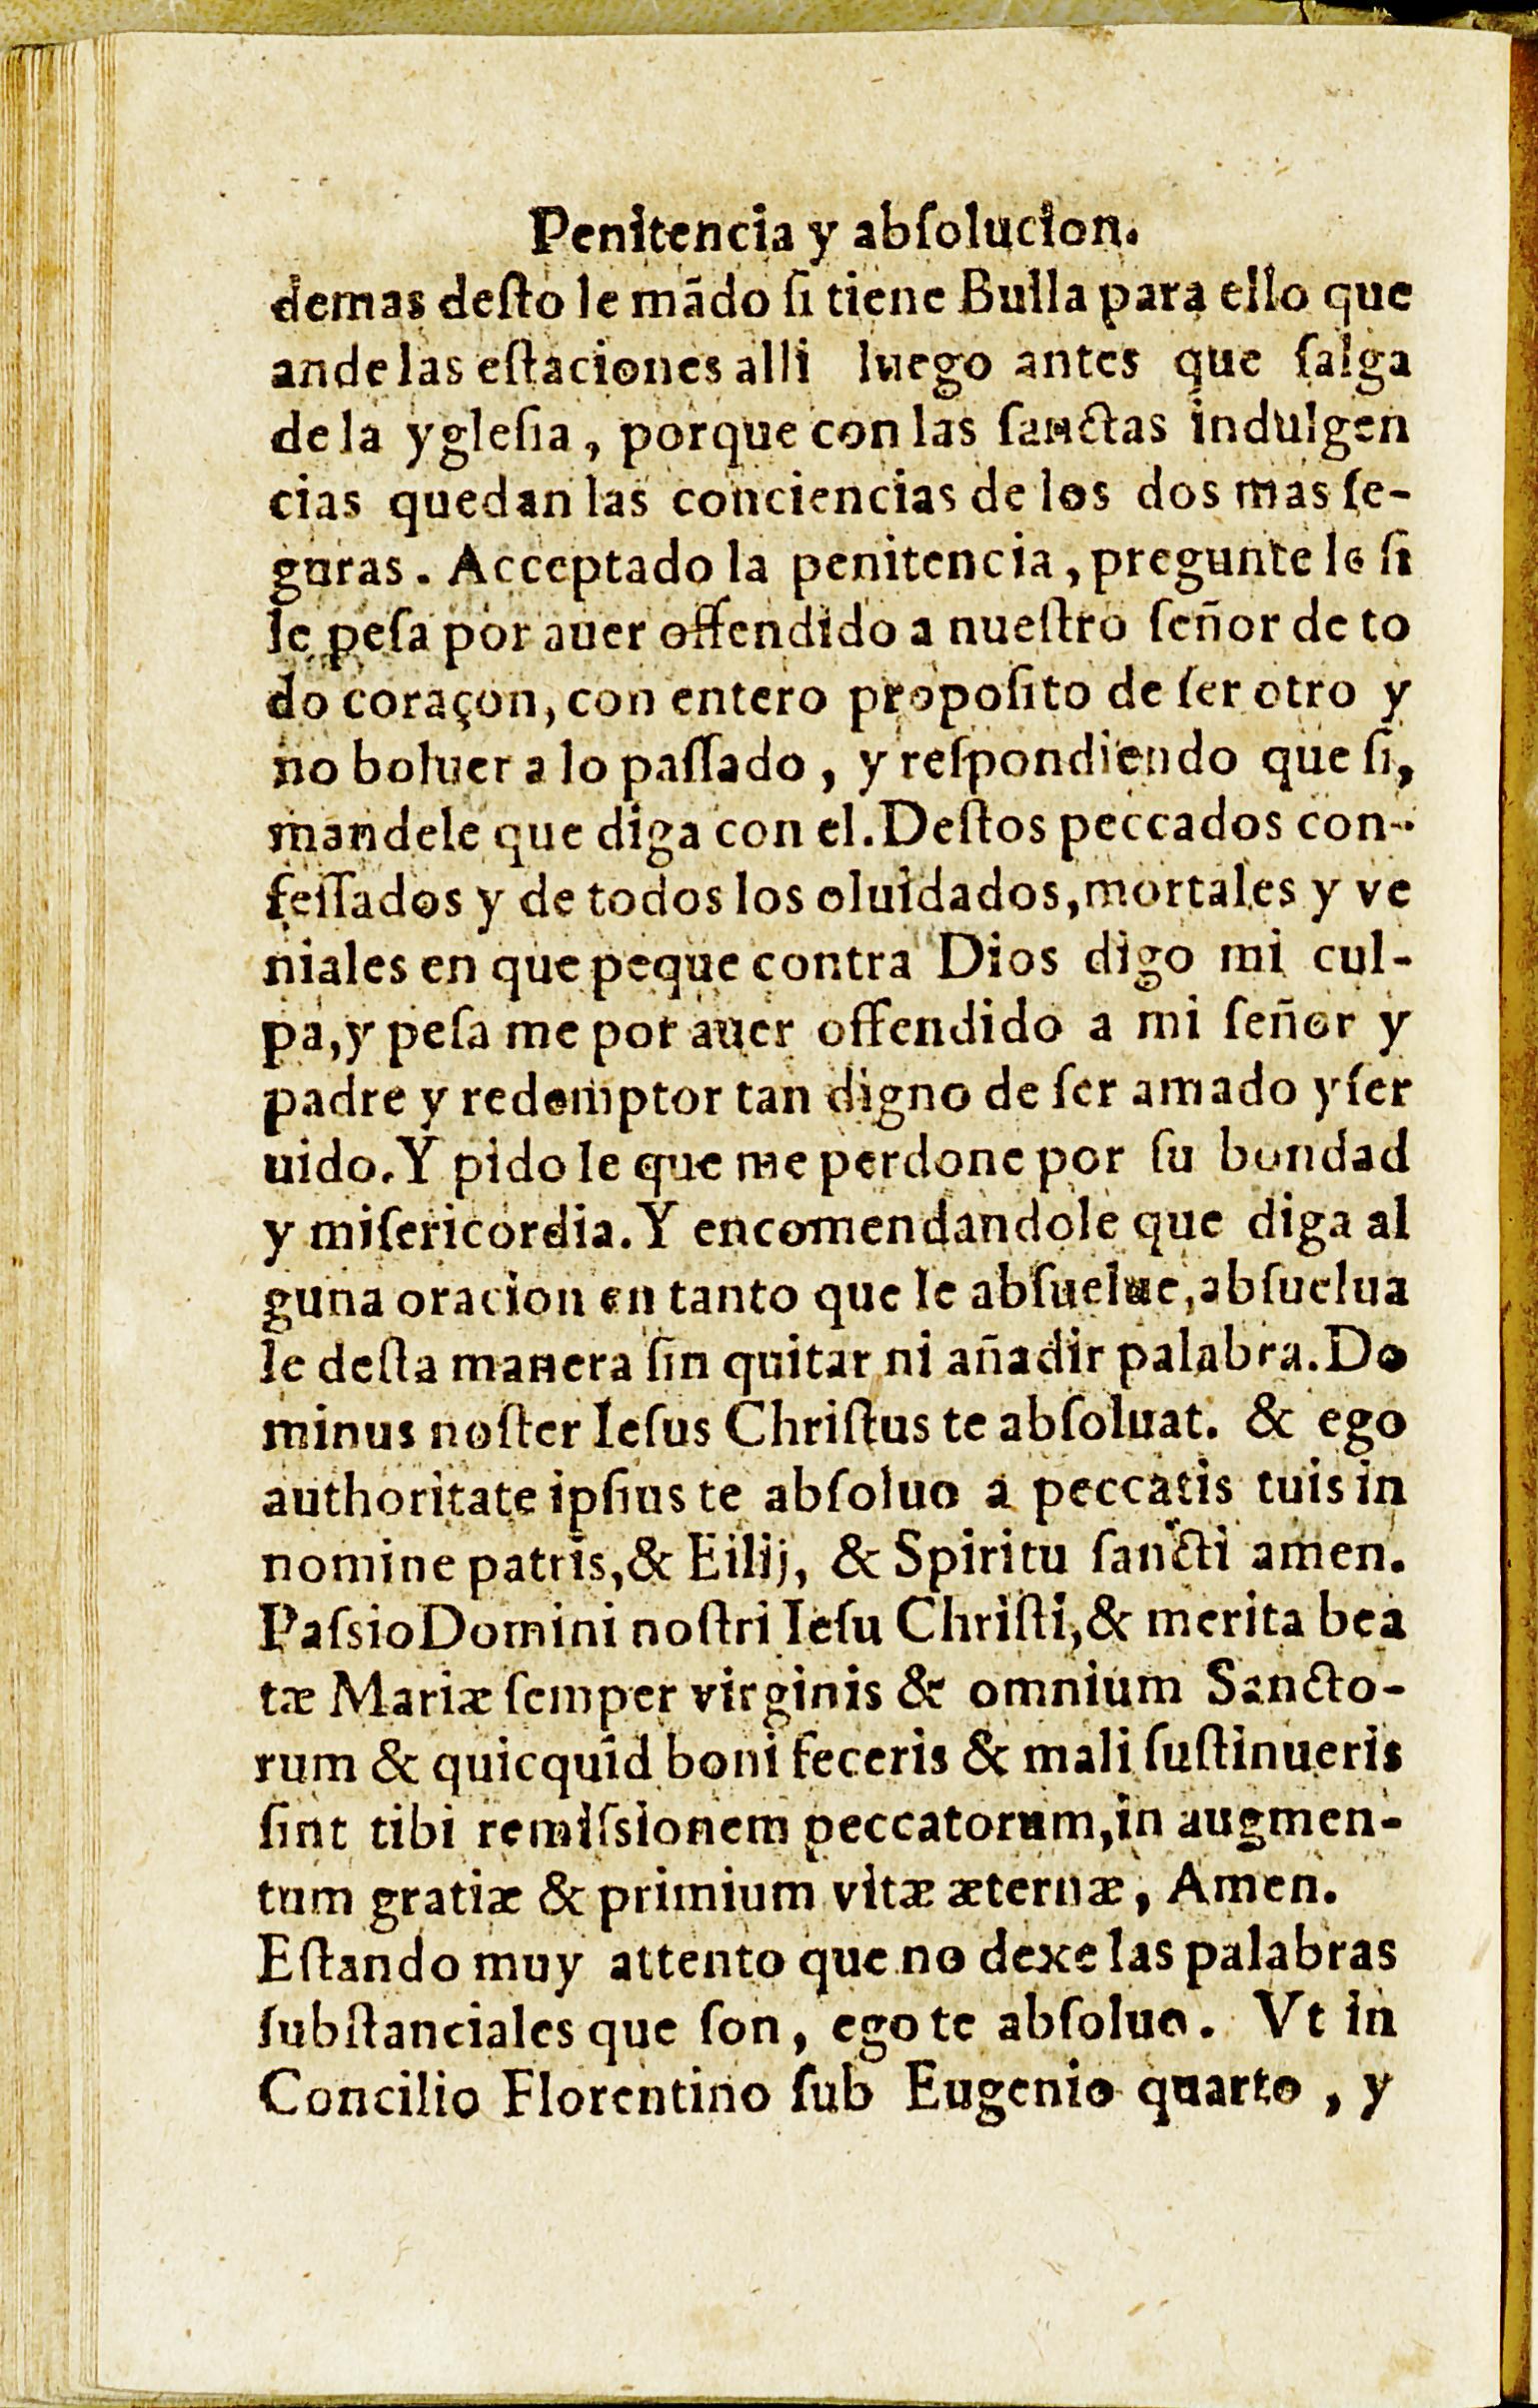 Penitencia y abſolucion.
demas deſto le mãdo ſi tiene Bulla para ello que
ande las eſtaciones alli luego antes que ſalga
de la ygleſia, porque con las ſanctas indulgen
cias quedan las conciencias de los dos mas ſe-
guras. Acceptado la penitencia, pregunte le ſi
le peſa por auer offendido a nueſtro ſeñor de to
do coraçon, con entero propoſito de ſer otro y
no boluer a lo paſſado, y reſpondiendo que ſi,
mandele que diga con el. Deſtos peccados con-
feſſados y de todos los oluidados, mortales y ve
niales en que peque contra Dios digo mi cul-
pa, y peſa me por auer offendido a mi ſeñor y
padre y redemptor tan digno de ſer amado y ſer
uido. Y pido le que me perdone por ſu bondad
y miſericordia. Y encomendandole que diga al
guna oracion en tanto que le abſuelue, abſuelua
le deſta manera ſin quitar ni añadir palabra. Do
minus noſter Ieſus Chriſtus te abſoluat. & ego
authoritate ipſius te abſoluo a peccatis tuis in
nomine patris, & Eilij, & Spiritu ſancti amen.
Paſsio Domini noſtri Ieſu Chriſti, & merita bea
tæ Mariæ ſemper virginis & omnium Sancto-
rum & quicquid boni feceris & mali ſuſtinueris
ſint tibi remiſsionem peccatorum, in augmen-
tum gratiæ & primium vitæ æternæ, Amen.
Eſtando muy attento que no dexe las palabras
ſubſtanciales que ſon, ego te abſoluo. Vt in
Concilio Florentino ſub Eugenio quarto, y